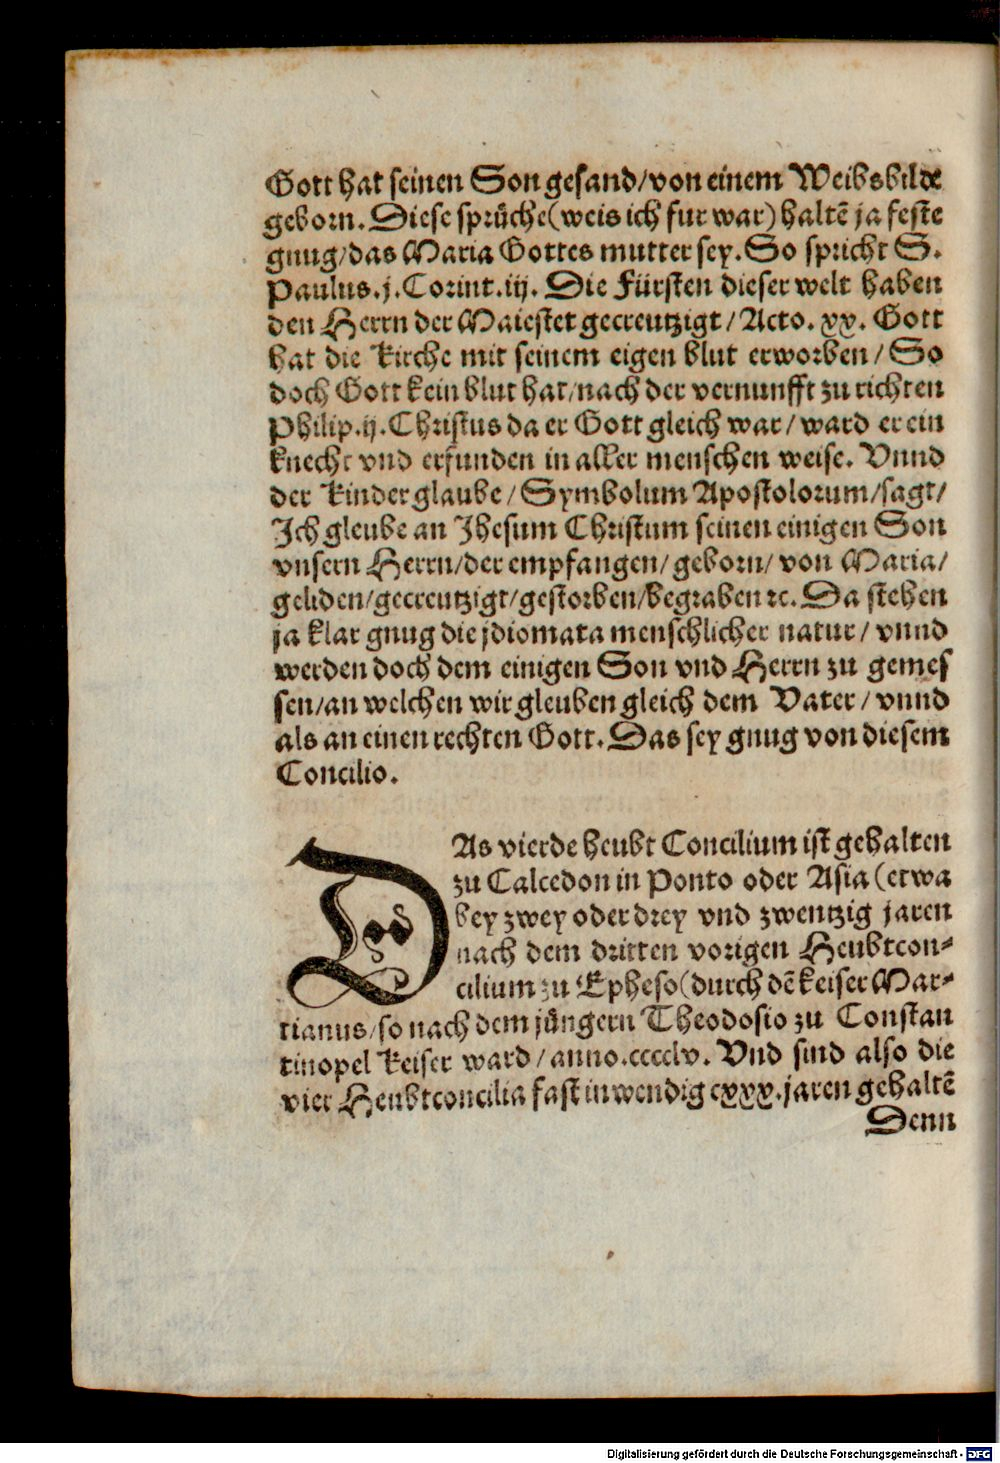 Gott hat seinen Son gesand/von einem Weibsbilde
geborn. Diese sprüche(weis ich fur war) haltē ja feste
gnug/das Maria Gottes mutter sey. So spricht S.
Paulus.j.Corint.iij. Die Fürsten dieser welt haben
den Herrn der Maiestet gecreutzigt/ Acto. xx. Gott
hat die kirche mit seinem eigen blut erworben/ So
doch Gott kein blut hat/nach der vernunfft zu richten
Philip.ij.Christus da er Gott gleich war/ ward er ein
knecht vnd erfunden in aller menschen weise. Vnnd
der kinder glaube/ Symbolum Apostolorum/sagt/
Ich gleube an Jhesum Christum seinen einigen Son
vnsern Herrn/der empfangen/ geborn/ von Maria/
geliden/gecreutzigt/gestorben/begraben ꝛc. Da stehen
ja klar gnug die jdiomata menschlicher natur/ vnnd
werden doch dem einigen Son vnd Herrn zu gemes
sen/an welchen wir gleuben gleich dem Vater/ vnnd
als an einen rechten Gott. Das sey gnug von diesem
Concilio.
DAs vierde heubt Concilium ist gehalten
zu Calcedon in Ponto oder Asia (etwa
bey zwey oder drey vnd zwentzig jaren
nach dem dritten vorigen Heubtcon-
cilium zu Epheso(durch dē keiser Mar-
tianus/so nach dem jüngern Theodosio zu Constan
tinopel keiser ward/anno.cccclv. Vnd sind also die
vier Heubtconcilia fast inwendig cxxx.jaren gehaltē
Denn
Digitalisierung gefördert durch die Deutsche Forschungsgemeinschaft - DFG